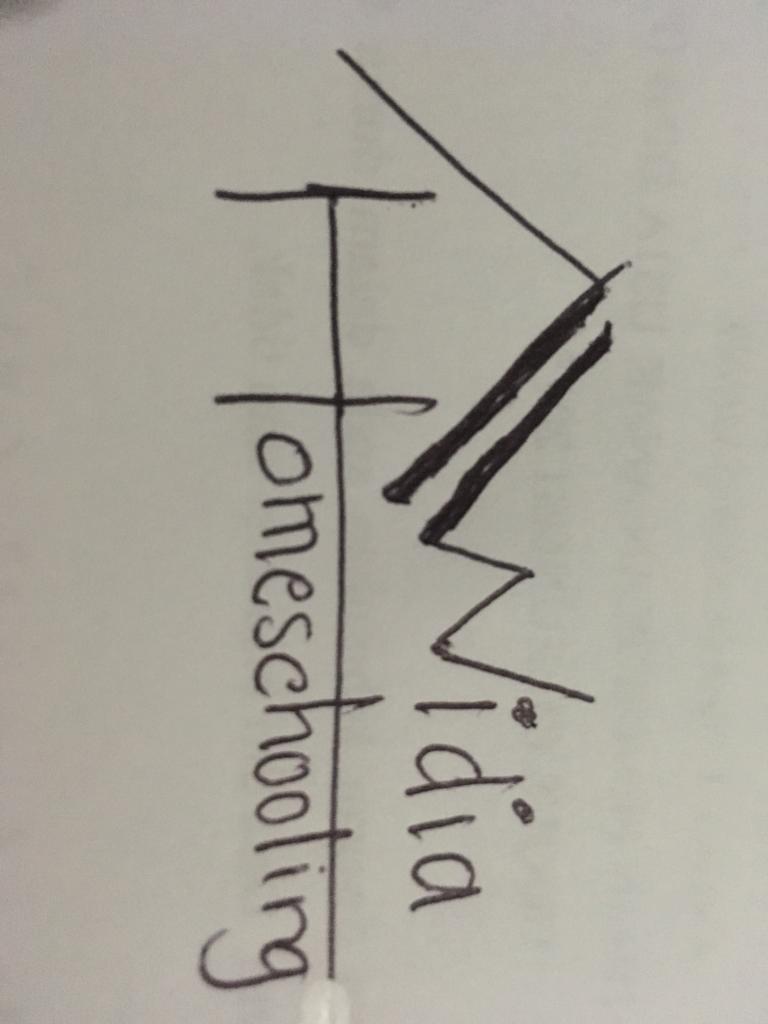 Widia
Homeschooling